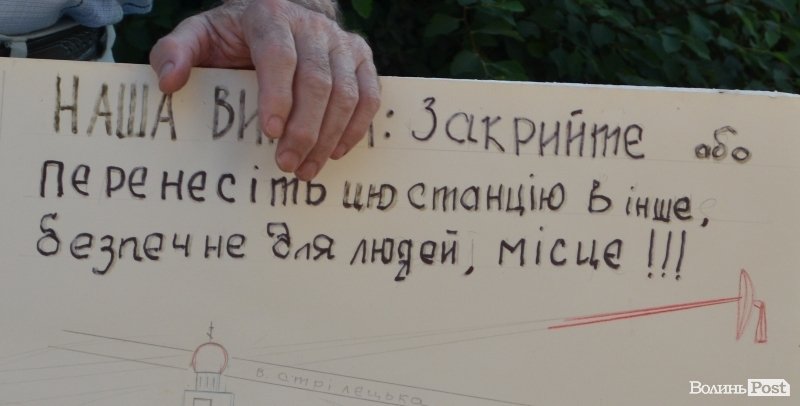 НАША : Закрийте або
перенесіть цю станцію в інше,
безпечне для людей, місце !!!
в. стрілецька
ВолиньPost